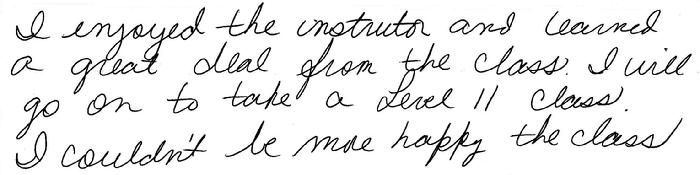 I enjoyed the instrutor and learned
a great deal from the class. I will
go on to take a Level 11 class.
I couldn't be more happy the class